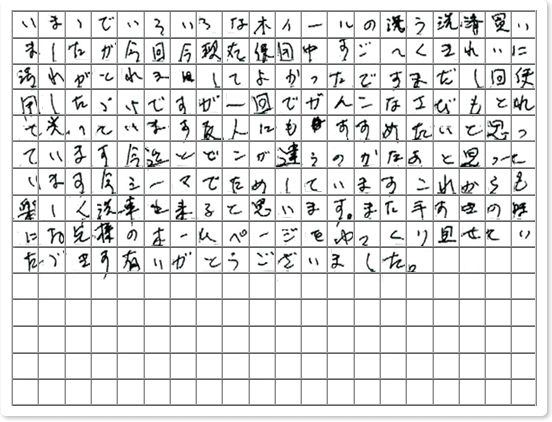 いままでいろいろなホイールの洗う洗浄買い
ましたが今回今現在使用中すごくきれいに
汚れがとれましてよかったですまだ1回使
用しただけですが一回でガンコなサビもとれ
て光っています友人にもすすめたいと思っ
ています今迄とどこが違うのかなあと思って
います今シーマでためしていますこれからも
楽しく洗車出来ると思います。また手すきの時
にお宅様のホームページをゆっくり見せてい
ただきますありがとうございました。